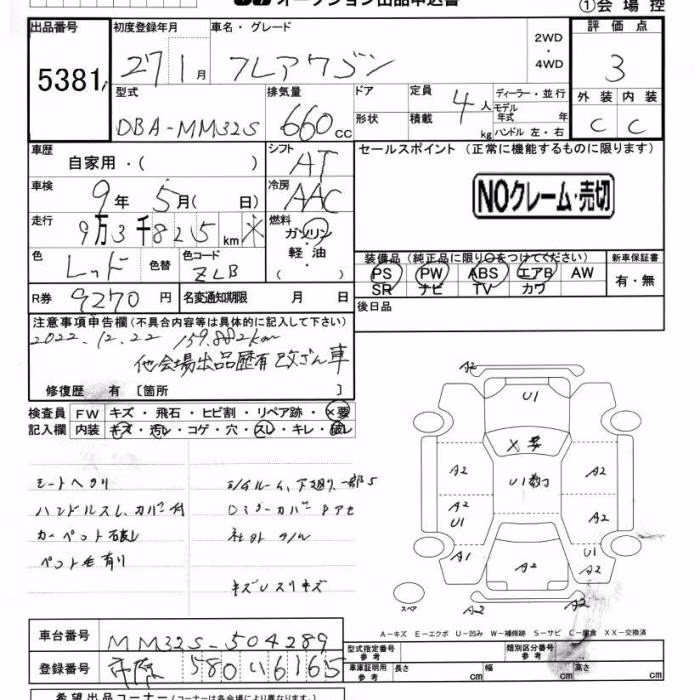 オークション出品申込書
①会場控
出品番号 初度登録年月 車名・グレード 2WD ・ 4WD 評価点
5381 27 1月 フレアワゴン 3
型式 排気量 ドア 定員 4人 ディーラー・並行 外装 内装
DBA-MM32S 660cc 形状 積載 kg モデル年式 年 ハンドル 左・右 C C
車歴 自家用・( ) シフト AT セールスポイント (正常に機能するものに限ります)
車検 9年 5月( 日) 冷房 AAC NOクレーム・売切
走行 9万3千825km ※ 燃料 ガソリン・軽油 ( )
色 レッド 色替 色コード ZLB
装備品 (純正品に限り○をつけてください) 新車保証書
PS PW ABS エアB AW 有・無
SR ナビ TV カワ
R券 9270円 名変通知期限 月 日 後日品
注意事項申告欄 (不具合内容等は具体的に記入して下さい)
2022.12.22 159.882km
他会場出品歴有 改ざん車
修復歴 有 [箇所 ]
検査員 FW キズ・飛石・ヒビ割・リペア跡・×要
記入欄 内装 キズ・汚レ・コゲ・穴・スレ・キレ・破レ
シートヘタリ
ハンドルスレ、カバー付
カーペット破レ
ペット毛有り
キズUスリキズ
A2
U1
×要
A2 U1 A2
A2 U1 A2
A1 A2 U1 A2
A2 A2
スペア
A-キズ E-エクボ U-凹み W-補修跡 S-サビ C-腐食 XX-交換済
車台番号 MM32S-504289
登録番号 580 い 6165
型式指定番号 参考 類別区分番号 参考
車庫証明用 参考 長さ cm 幅 cm 高さ cm
希望出品コーナー (コーナーは各会場により異なります)